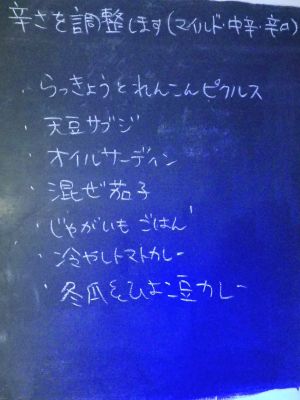 辛さを調整します(マイルド・中辛・辛口)
・らっきょうとれんこんピクルス
・天豆サブジ
・オイルサーディン
・混ぜ茄子
・じゃがいもごはん
・冷やしトマトカレー
・冬瓜とひよこ豆カレー